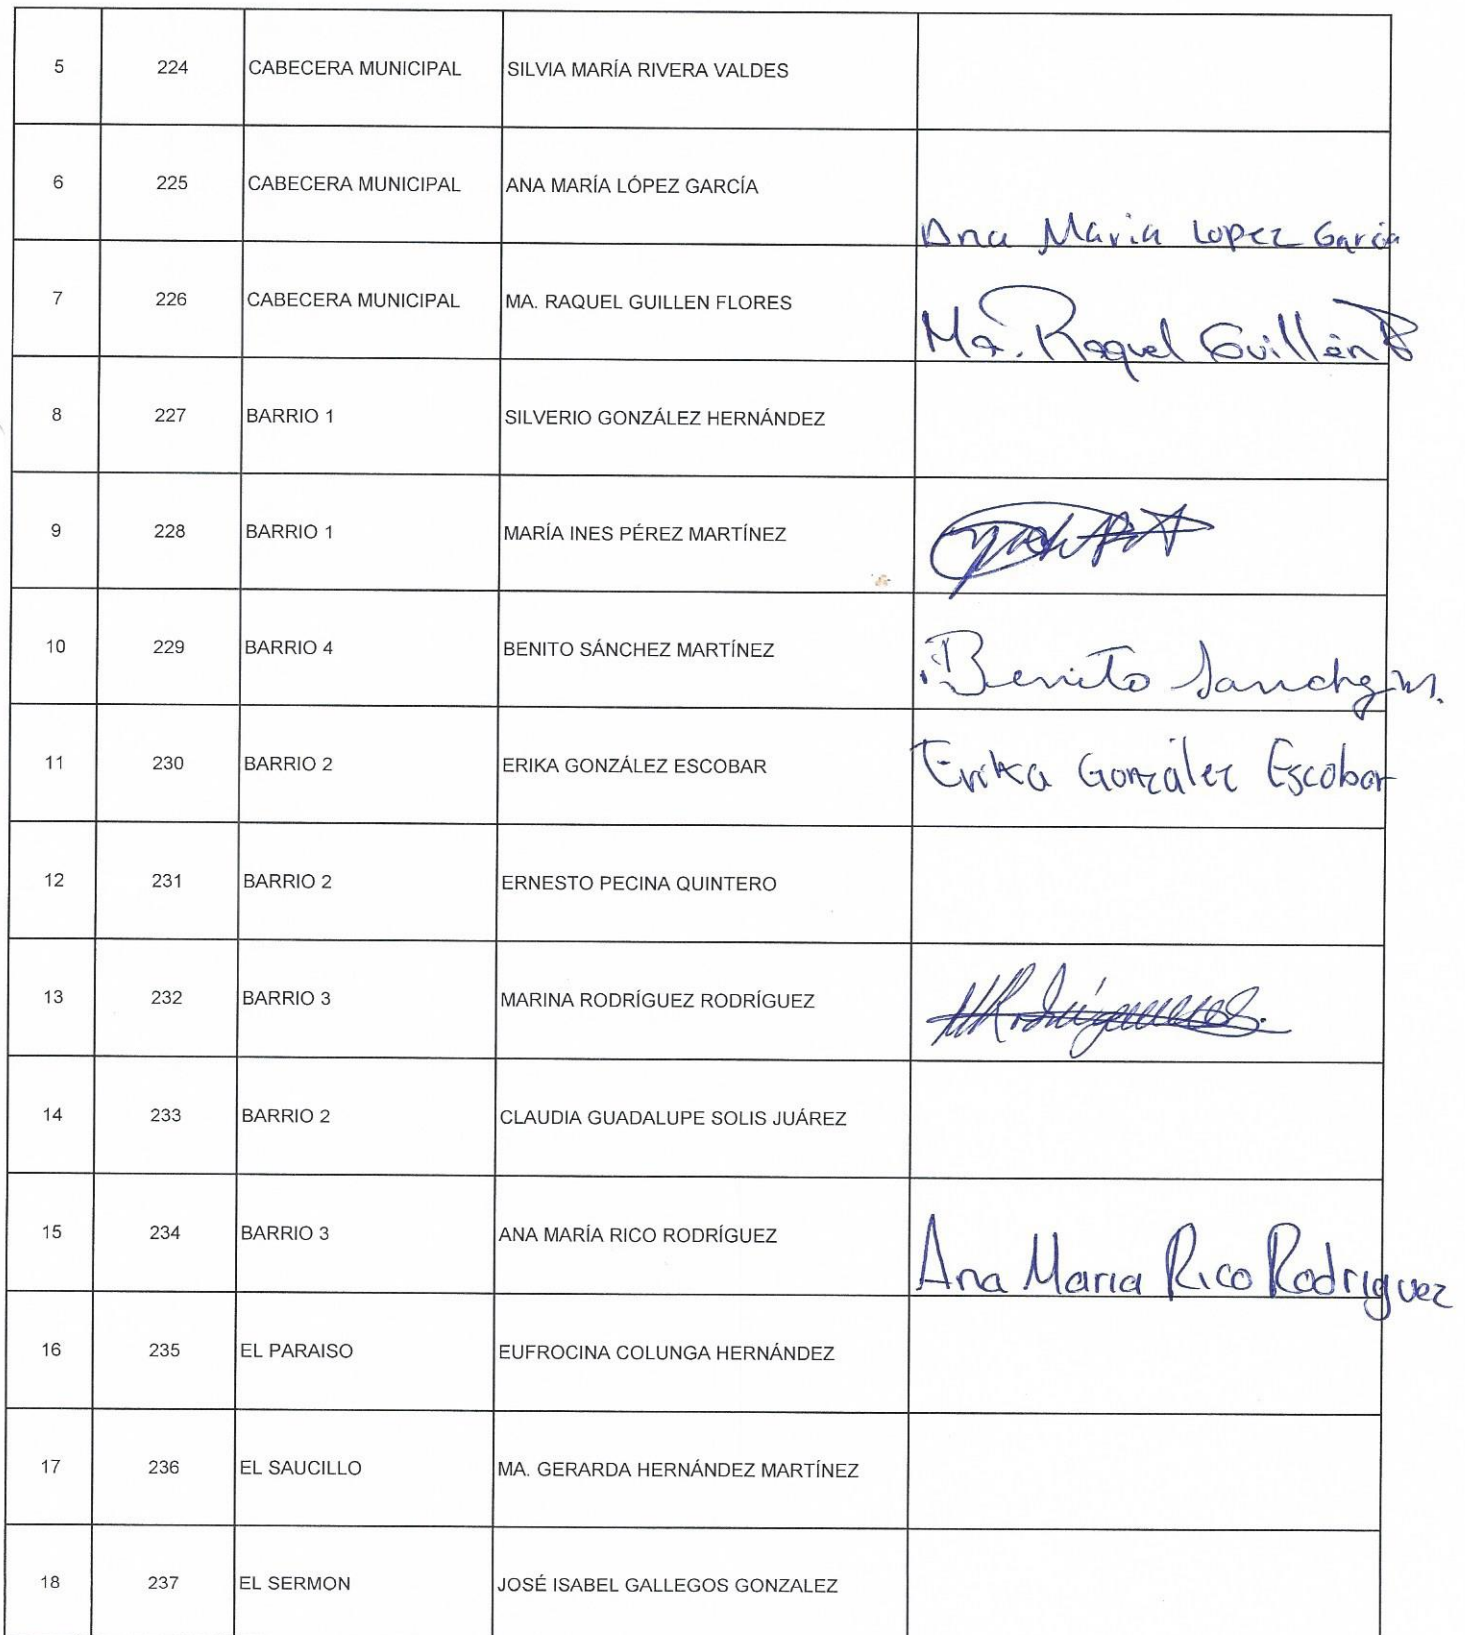 5 224 CABECERA MUNICIPAL SILVIA MARÍA RIVERA VALDES
6 225 CABECERA MUNICIPAL ANA MARÍA LÓPEZ GARCÍA Ana Maria Lopez García
7 226 CABECERA MUNICIPAL MA. RAQUEL GUILLEN FLORES Ma. Raquel Guillén
8 227 BARRIO 1 SILVERIO GONZÁLEZ HERNÁNDEZ
9 228 BARRIO 1 MARÍA INES PÉREZ MARTÍNEZ
10 229 BARRIO 4 BENITO SÁNCHEZ MARTÍNEZ Benito Sanchez M.
11 230 BARRIO 2 ERIKA GONZÁLEZ ESCOBAR Erika González Escobar
12 231 BARRIO 2 ERNESTO PECINA QUINTERO
13 232 BARRIO 3 MARINA RODRÍGUEZ RODRÍGUEZ
14 233 BARRIO 2 CLAUDIA GUADALUPE SOLIS JUÁREZ
15 234 BARRIO 3 ANA MARÍA RICO RODRÍGUEZ Ana Maria Rico Rodriguez
16 235 EL PARAISO EUFROCINA COLUNGA HERNÁNDEZ
17 236 EL SAUCILLO MA. GERARDA HERNÁNDEZ MARTÍNEZ
18 237 EL SERMON JOSÉ ISABEL GALLEGOS GONZALEZ